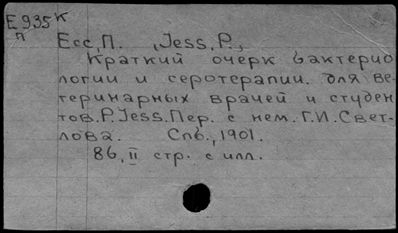 Е 935 К
п
Есс, П. , Jess, P.,
Краткий очерк бактерио
логии и серотерапии. для ве-
теринарных врачей и студен
тов. P. Jess. Пер. с нем. Г.И. Свет-
лова. Спб., 1901.
86, II стр. с илл.